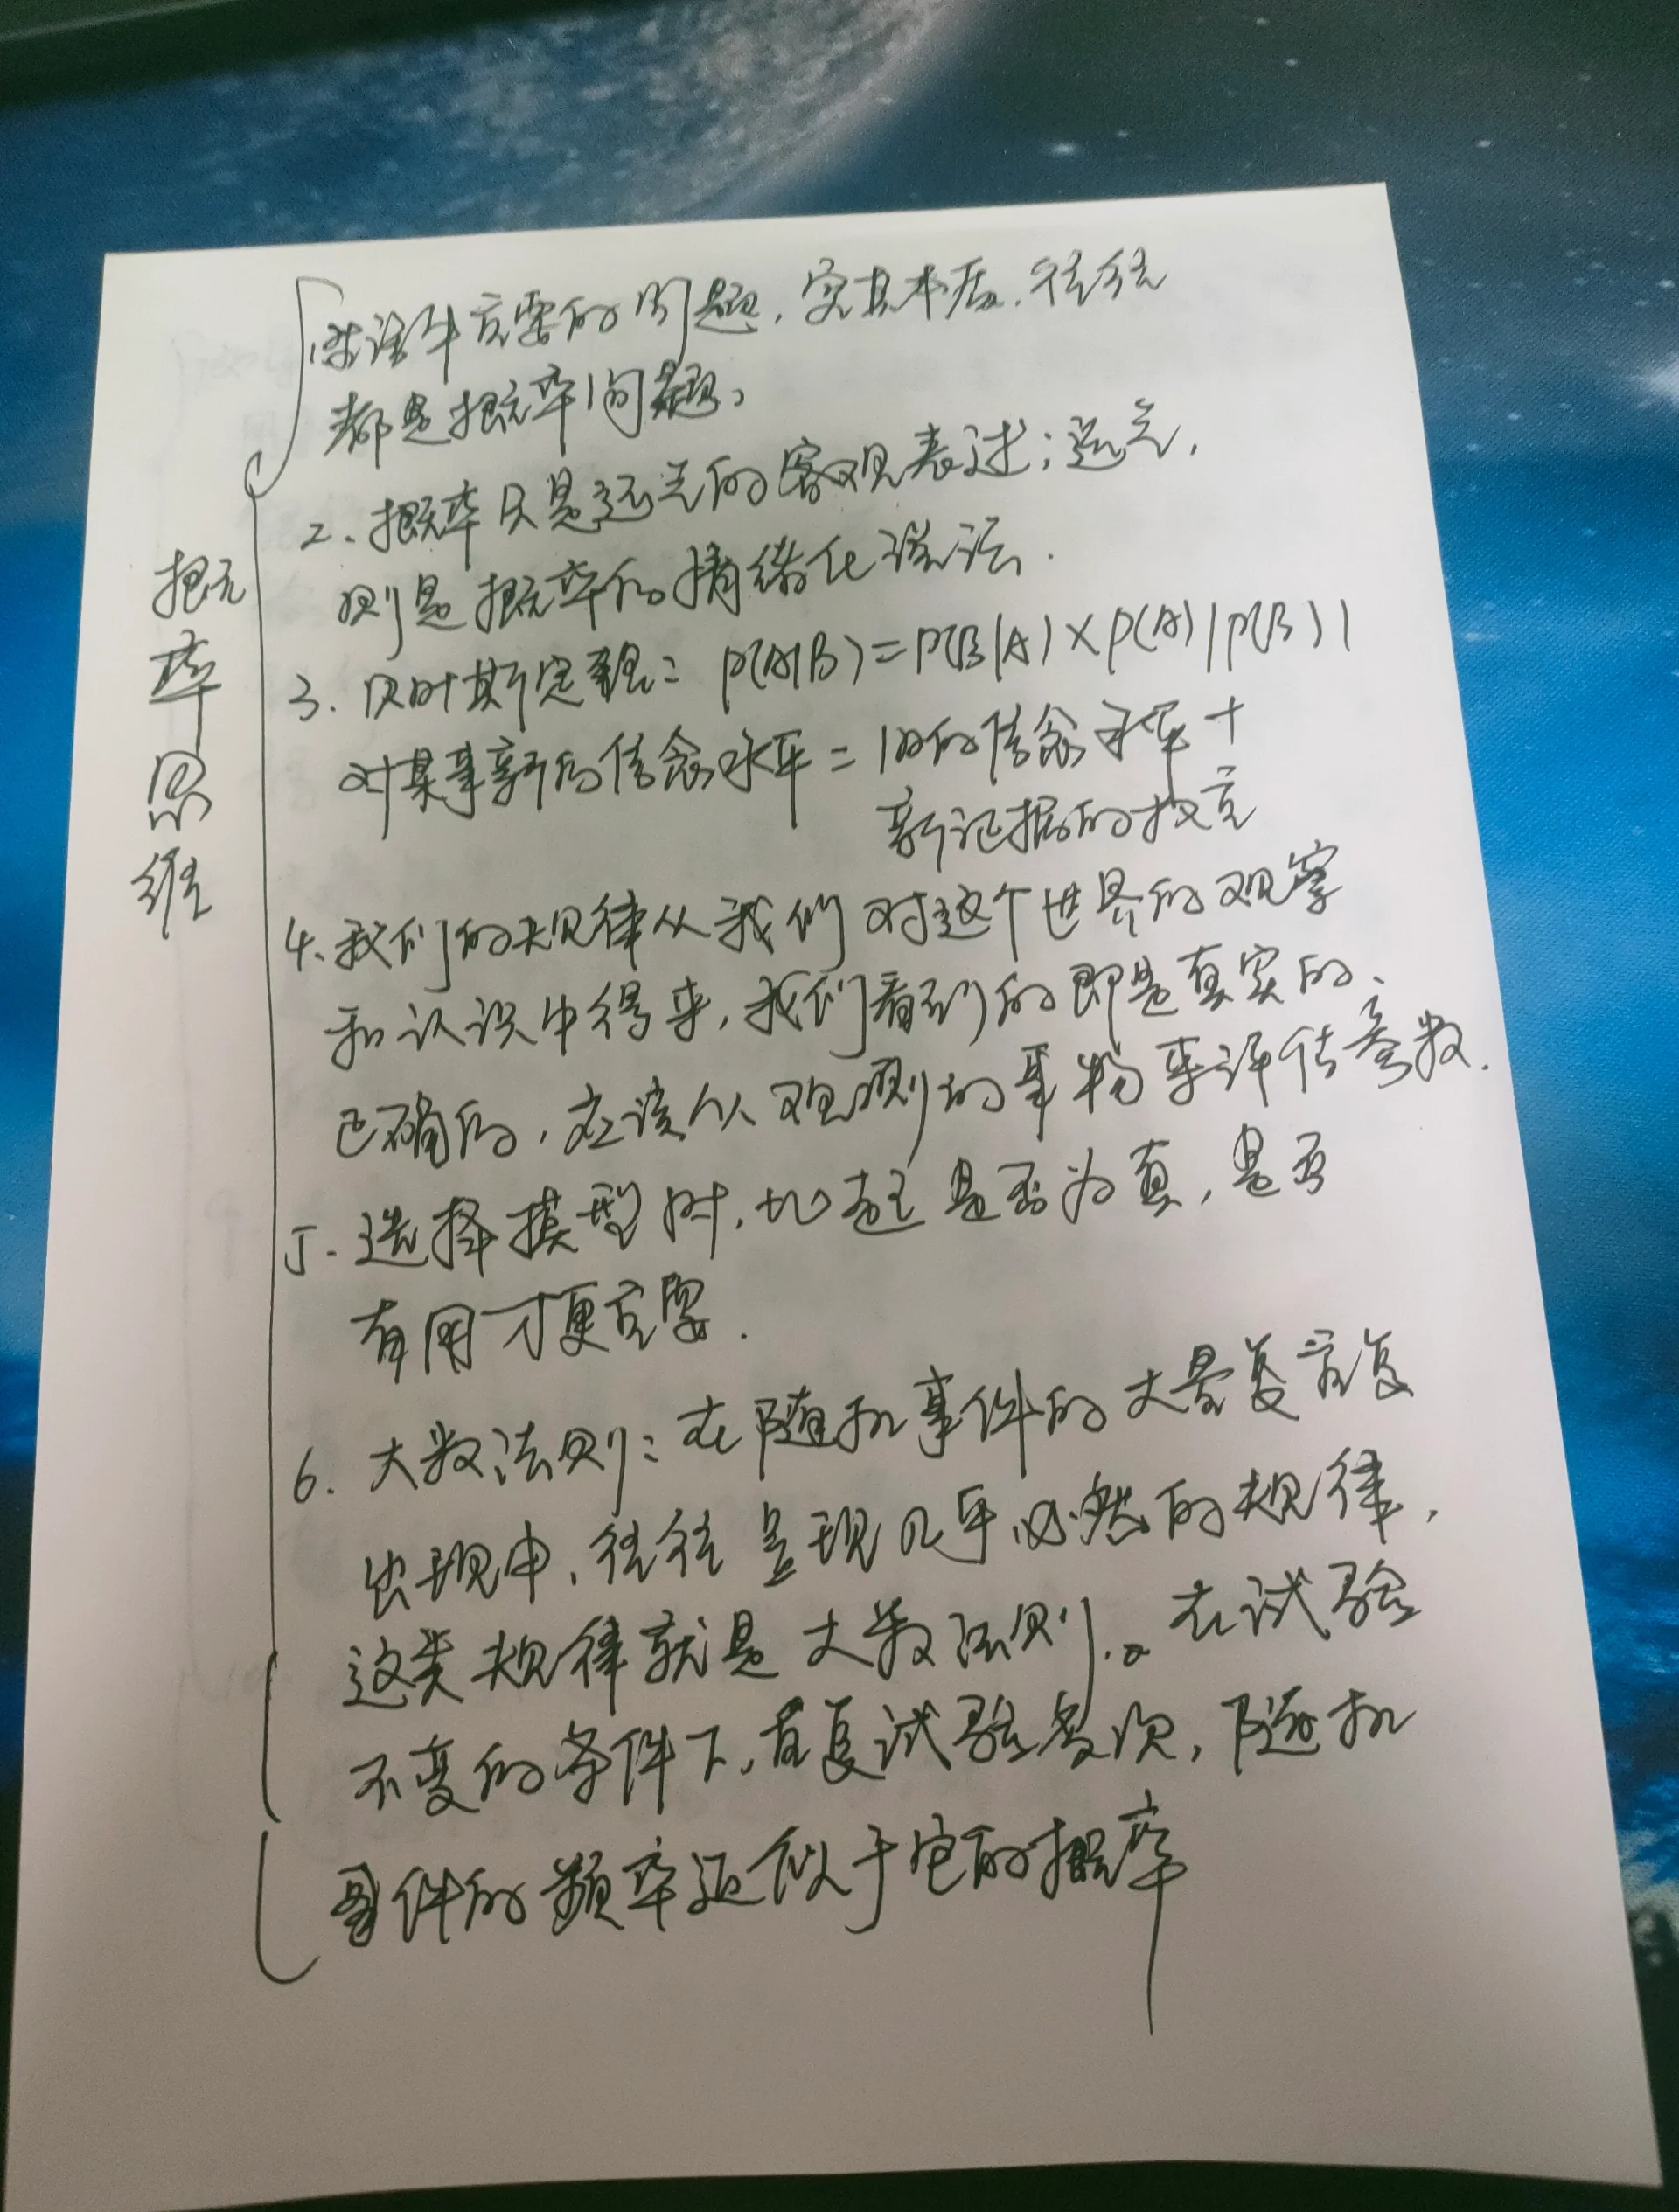 概率思维
1.生活中重要的问题,究其本质.往往
都是概率问题。
2、概率只是运气的客观表述;运气,
则是概率的情绪化说法.
3.贝叶斯定理:P(A|B)=P(B|A)×P(A)|P(B)|
对某事新的信念水平=旧的信念水平+
新证据的权重
4、我们的规律从我们对这个世界的观察
和认识中得来,我们看到的即是真实的、
正确的,应该从观测的事物来评估参数.
5.选择模型时,比起是否为真,是否
有用才更重要.
6.大数法则:在随机事件的大量重复
出现中,往往呈现几乎必然的规律,
这类规律就是大数法则。在试验
不变的条件下,重复试验多次,随机
事件的频率近似于它的概率